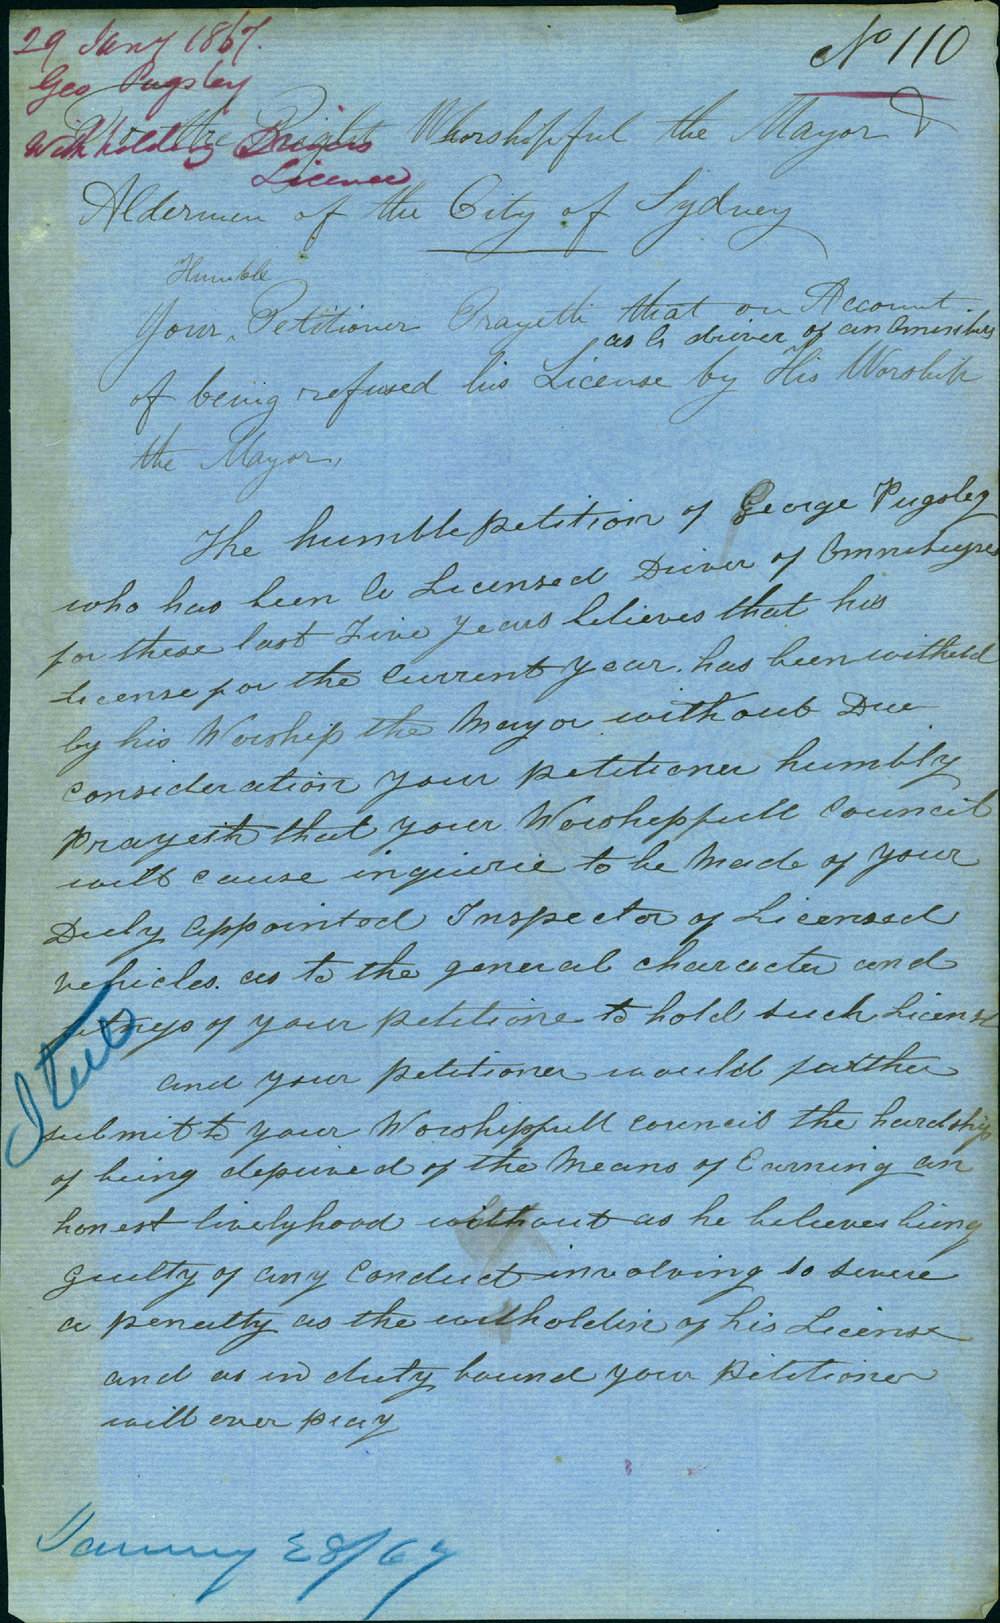 29 Jany 1867.
Geo Pugsley
Withholding Drivers
License
No 110
To the Right Worshipful the Mayor &
Aldermen of the City of Sydney
Humble
Your Petitioner Prayeth that on Account
as a driver of an Omnibus
of being refused his License by His Worship
the Mayor,
The humble petition of George Pugsley
who has been a Licensed Driver of Omnibuyses
for these last Five years believes that his
License for the Current year. has been witheld
by his Worship the Mayor without Due
consideration your petitioner humbly
prayeth that your Worshippfull Council
will cause inquirie to be Made of your
Duly Appointed Inspector of Licensed
vehicles. as to the general character and
fitness of your petitione to hold such License
and your petitioner would further
submit to your Worshippfull council the hardship
of being deprived of the Means of Earning an
honest livelyhood without as he believes being
guilty of any Conduct involving so severe
a penalty as the witholdin of his License
and as in duty bound your Petitioner
will ever pray
January 28/67